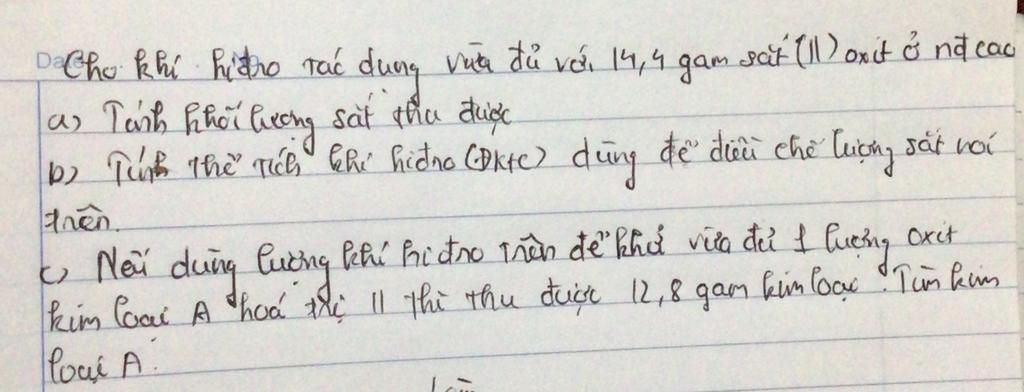 Cho khí hiđro tác dụng vừa đủ với 14,4 gam sắt (II) oxit ở nđ cao
a) Tính khối lượng sắt thu được
b) Tính thể tích khí hiđro (Đktc) dùng để điều chế lượng sắt nói
trên.
c) Nếu dùng lượng khí hiđro trên để khử vừa đủ 1 lượng oxit
kim loại A hoá trị II thì thu được 12,8 gam kim loại. Tìm kim
loại A.